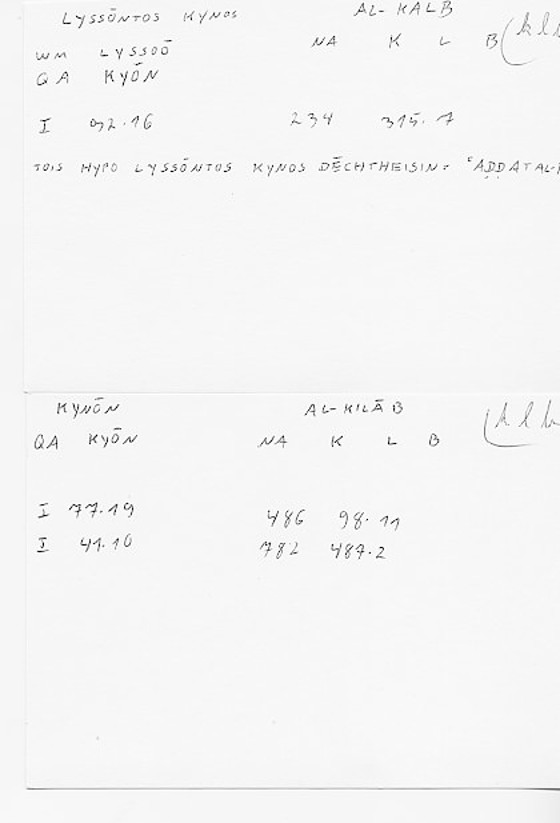 LYSSŌNTOS KYNOS AL-KALB
WM LYSSOŌ NA K L B (kl
QA KYŌN
I 92.16 234 315.7
TOIS HYPO LYSSŌNTOS KYNOS DĒCHTHEISIN: ʿAḌḌAT AL-
KYNŌN AL-KILĀB
QA KYŌN NA K L B (klb
I 77.19 486 98.11
I 41.10 782 487.2